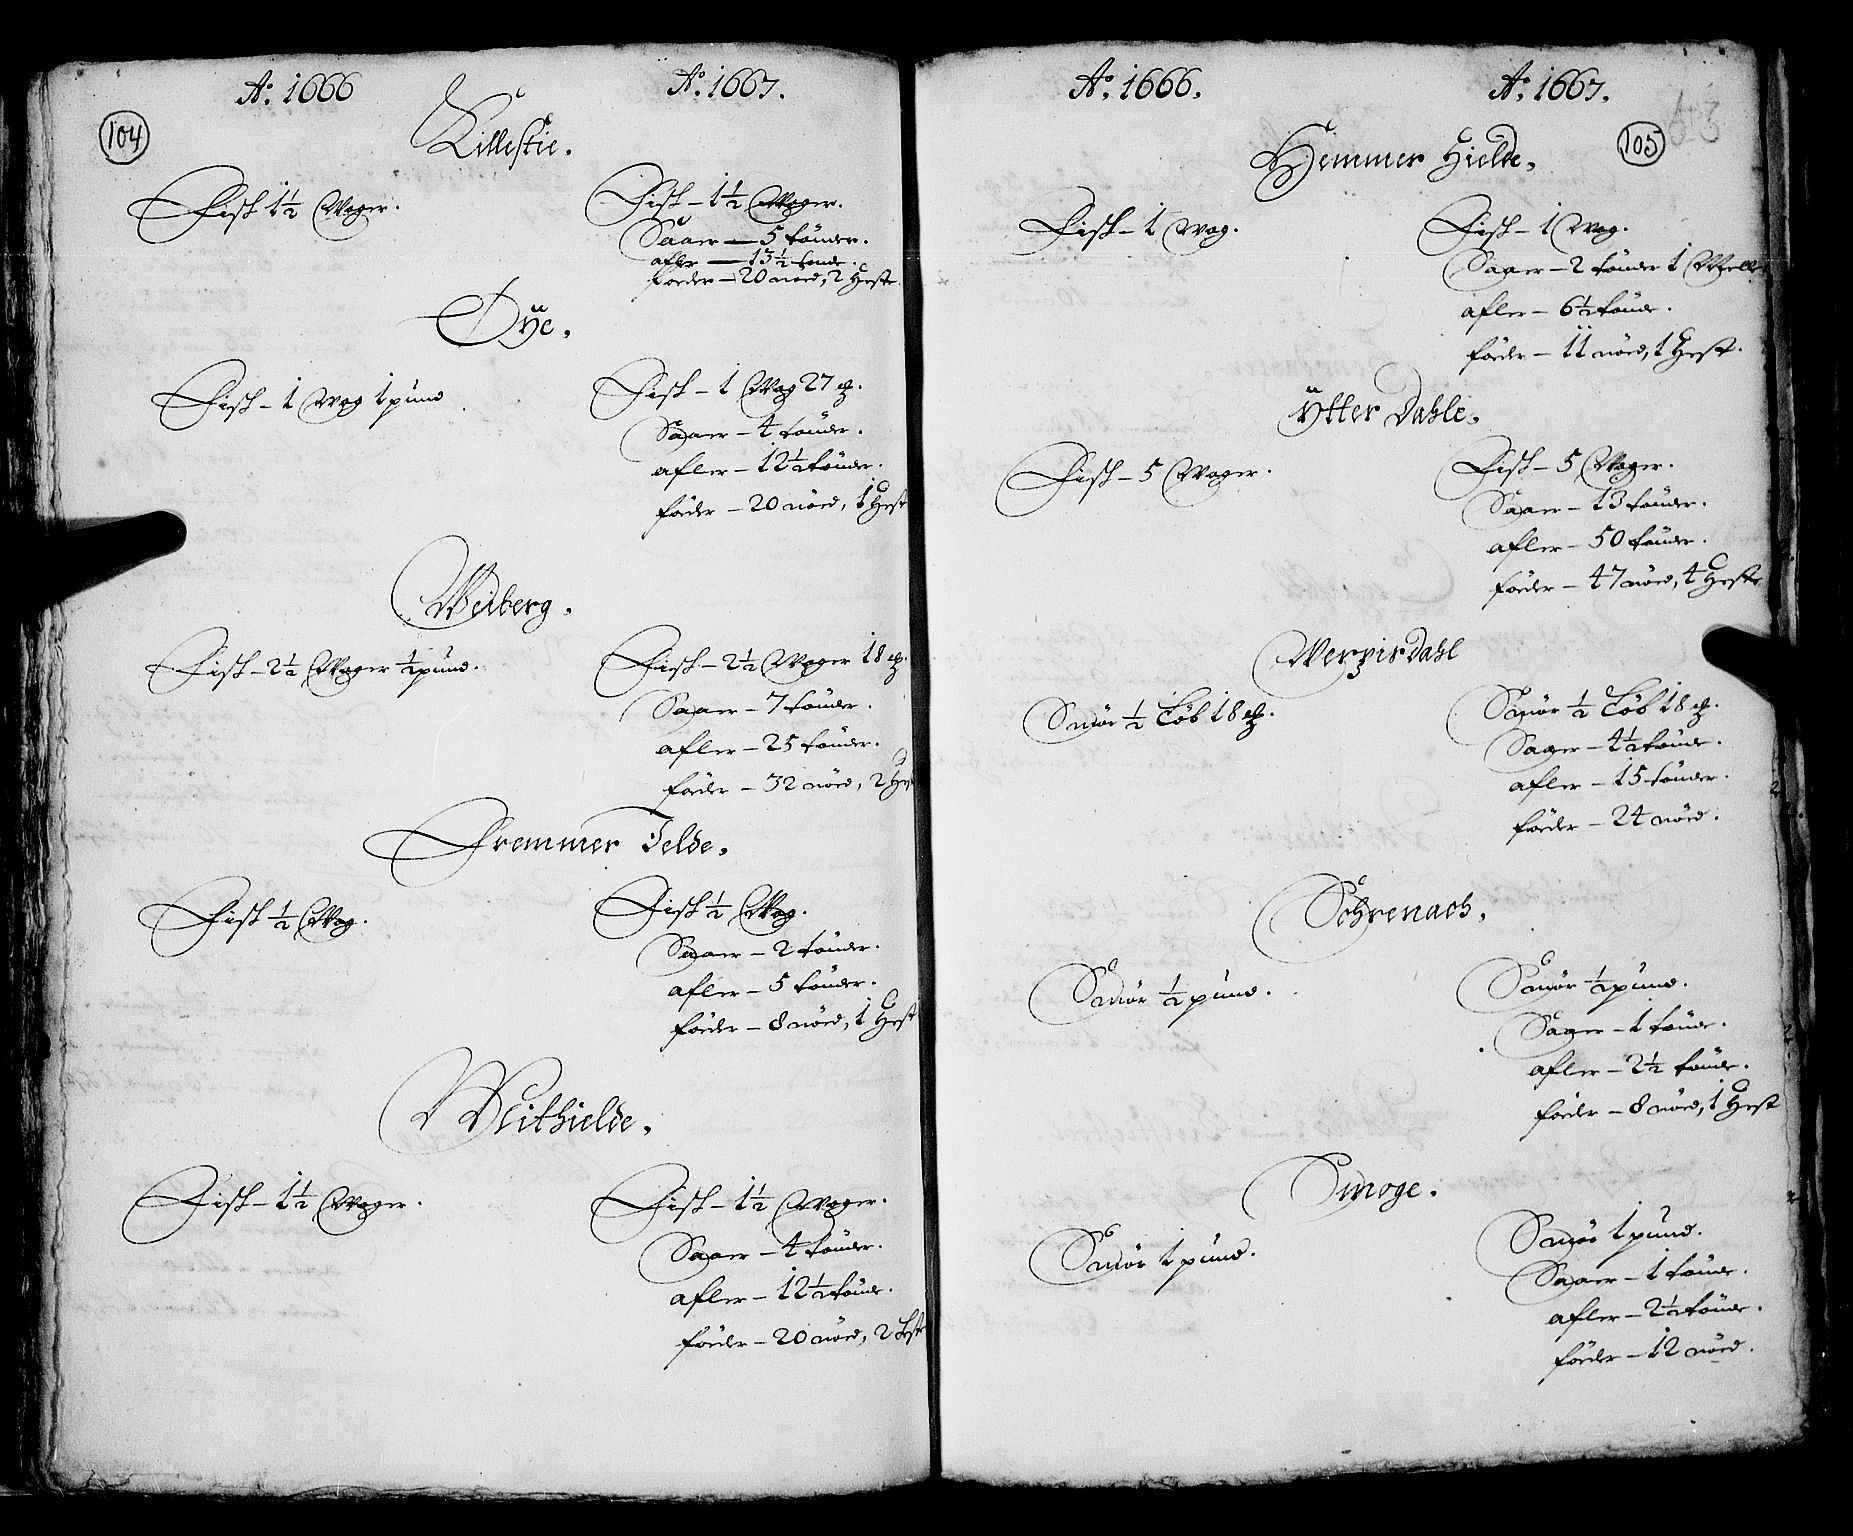 104
Aº. 1666
Aº. 1667.
Lillestie.
Fisk 1½ Woger.
Fisk – 1½ Woger.
Saaer – 5 tönder.
afler – 13½ tönde.
föeder – 20 nöed, 2 Heste
Öÿe.
Fisk – 1 Wog 1 pund
Fisk – 1 Wog 27 ℔.
Saaer – 4 tönder.
afler – 12½ tönder.
föeder – 20 nöed, 1 Hest
Weiberg.
Fisk – 2½ Woger ½ pund.
Fisk – 2½ Woger 18 ℔.
Saaer – 7 tönder.
afler – 25 tönder.
föeder – 32 nöed, 2 Hes
Fremmer Jelde.
Fisk ½ Wog.
Fisk ½ Wog.
Saaer – 2 tönder.
afler – 5 tönder.
föeder – 8 nöed, 1 Hest
Withielde.
Fisk – 1½ Woger.
Fisk – 1½ Woger.
Saaer – 4 tönder.
afler – 12½ tönde.
föeder – 20 nöed, 2 Heste
Aº. 1666.
Aº. 1667.
105
Hemmer Hielde.
Fisk – 1 Wog.
Fisk – 1 Wog.
Saaer – 2 tönder 1 Melle
afler – 6½ tönde.
föeder – 11 nöed, 1 Hest.
Ÿtter Dahle.
Fisk – 5 Woger.
Fisk – 5 Woger.
Saaer – 13 tönder.
afler – 50 tönder.
föeder – 47 nöed, 4 Heste
Werpisdahl
Smör ½ Löb 18 ℔.
Smör ½ Löb 18 ℔.
Saaer – 4½ tönde.
afler – 15 tönder.
föeder – 24 nöed.
Schrenach.
Smör ½ pund.
Smör ½ pund.
Saaer – 1 tönde.
afler – 2½ tönde.
föeder – 8 nöed, 1 Hest
Smoge.
Smör 1 pund.
Smör 1 pund.
Saaer – 1 tönde.
afler – 2½ tönde.
föeder – 12 nöed.